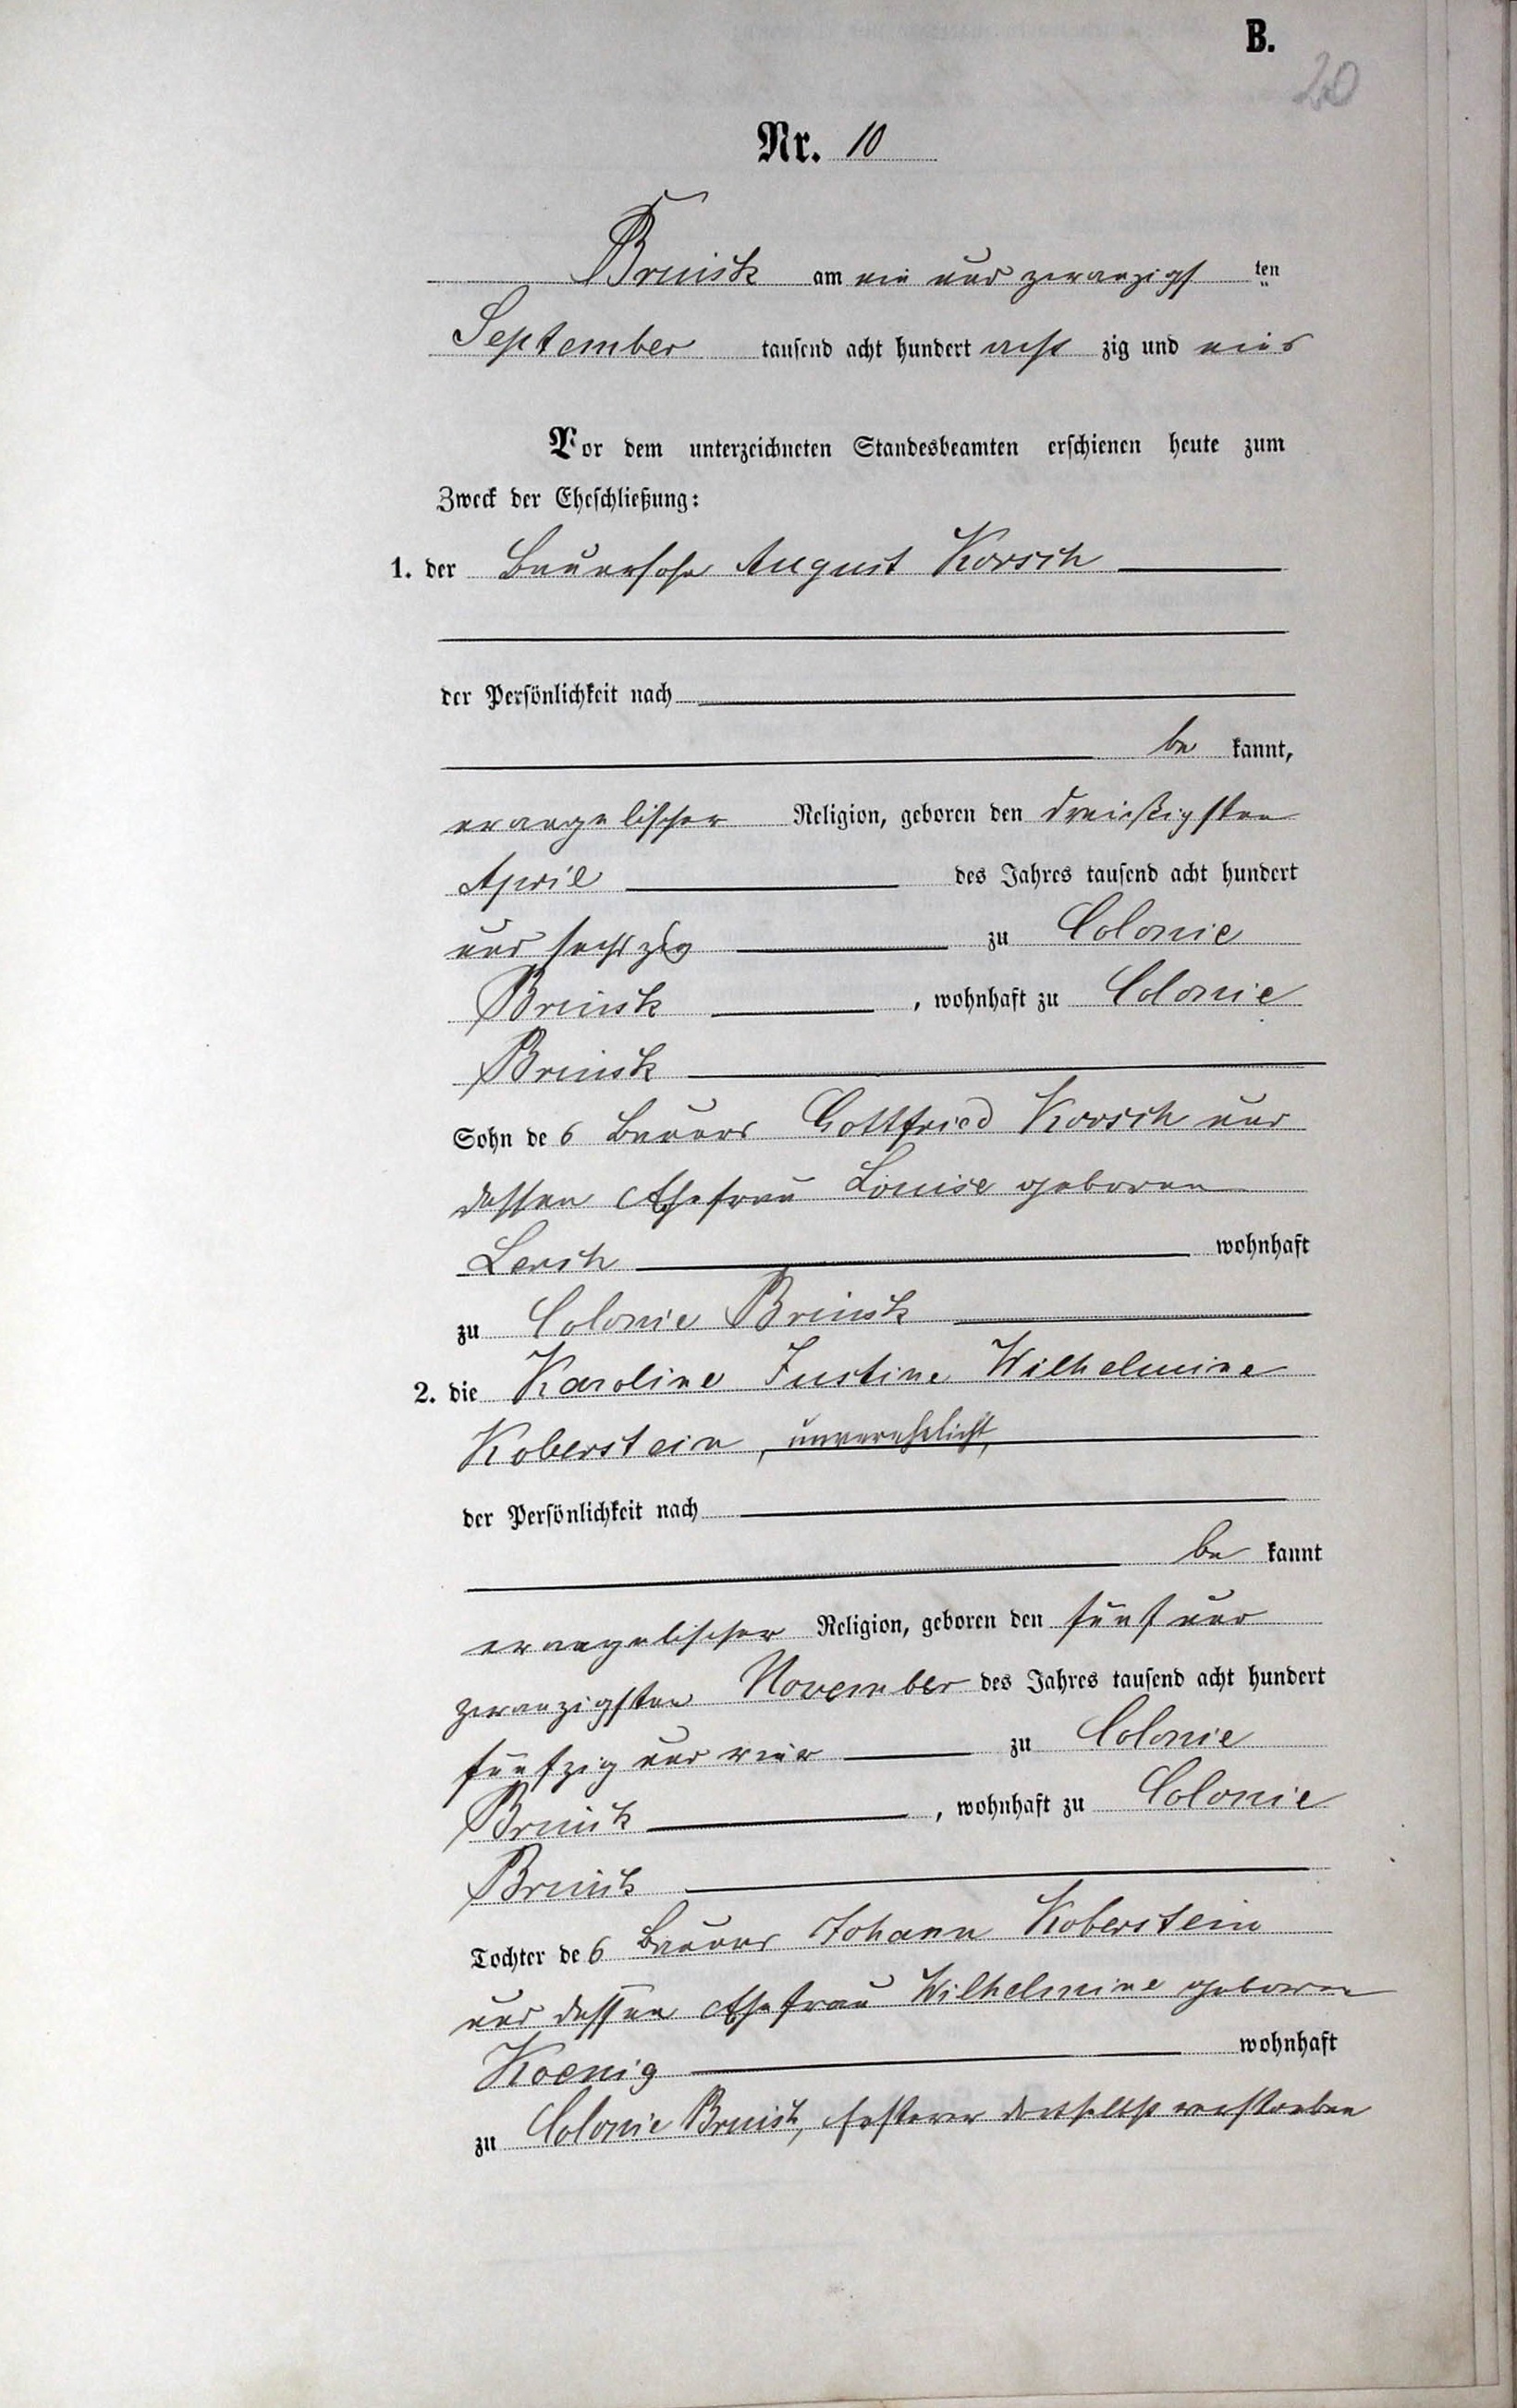 B.
20
Nr. 10
Brinsk am ein und zwanzigs ten
September tausend acht hundert acht zig und eins
Vor dem unterzeichneten Standesbeamten erschienen heute zum
Zweck der Eheschließung:
1. der Bauersohn August Korsch
der Persönlichkeit nach
be kannt,
evangelischer Religion, geboren den dreißigsten
April des Jahres tausend acht hundert
und sechzig zu Colonie
Brinsk, wohnhaft zu Colonie
Brinsk
Sohn des Bauers Gottfried Korsch und
dessen Ehefrau Louise geboren
Lersch wohnhaft
zu Colonie Brinsk
2. die Karoline Justine Wilhelmine
Koberstein, unverehelicht,
der Persönlichkeit nach
be kannt
evangelischer Religion, geboren den fünf und
zwanzigsten November des Jahres tausend acht hundert
fünfzig und vier zu Colonie
Brinsk, wohnhaft zu Colonie
Brinsk
Tochter des Bauers Johann Koberstein
und dessen Ehefrau Wilhelmine geboren
Koenig wohnhaft
zu Colonie Brinsk, Ersterer daselbst verstorben